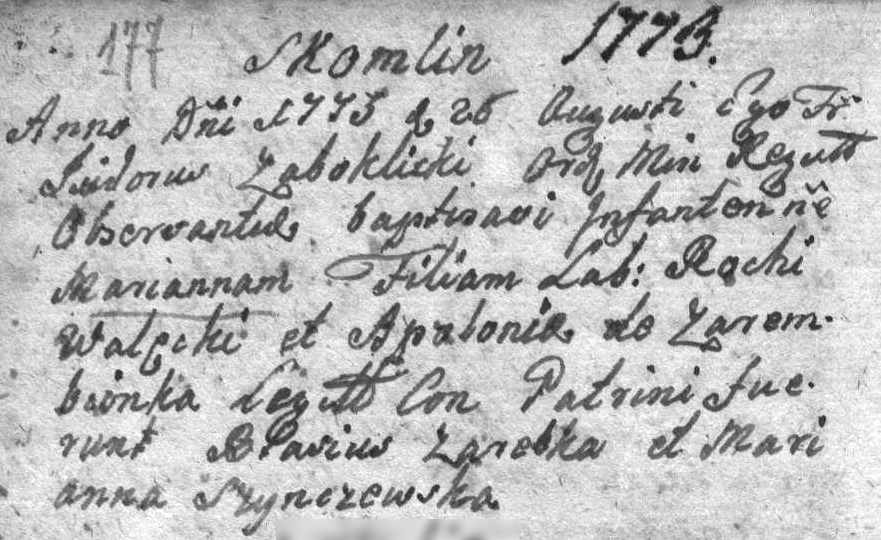 177 Skomlin 1773.
Anno Dni 1773 d 26 Augusti Ego Fr:
Isidorus Zaboklicki Ord Min Regutt
Observantiæ baptisavi Infantem nie
Mariannam Filiam Lab: Rochi
Walęcki et Apoloniæ de Zarem-
bionka Legitt Con Patrini fue-
runt Blasius Zarebka et Mari
anna Szynczewska